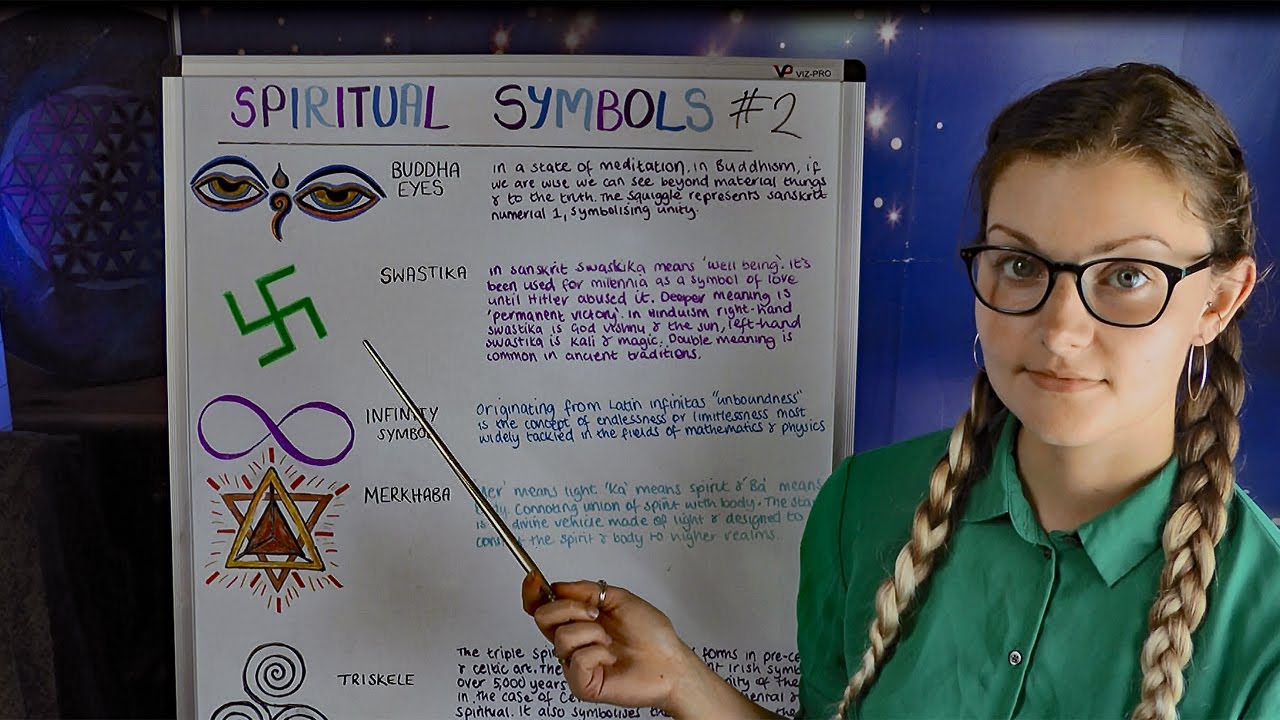 VIZ-PRO
SPIRITUAL SYMBOLS #2
BUDDHA
EYES
in a state of meditation. in Buddhism, if
we are wise we can see beyond material things
& to the truth. The squiggle represents sanskrit
numerial 1, symbolising unity.
SWASTIKA
in sanskrit swaskika means 'well being'. it's
been used for millennia as a symbol of love
until Hitler abused it. Deeper meaning is
'permanent victory'. in Hinduism right-hand
swastika is God vishnu & the sun, left-hand
swastika is Kali & magic. Double meaning is
common in ancient traditions.
INFINITY
SYMBOL
Originating from Latin infinitas "unboundness"
is the concept of endlessness or limitlessness most
widely tackled in the fields of mathematics & physics
MERKHABA
'Mer' means light 'Ka' means spirit & 'Ba' means
body. Connoting union of spirit with body. The
is divine vehicle made of light & designed to
the spirit & body to higher realms.
TRISKELE
The triple forms in
& celtic art. The Irish
over 5,000 years of the
in the case of &
spiritual. it also symbolises